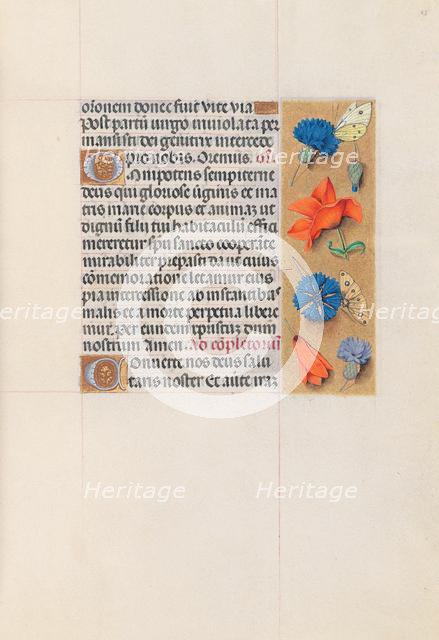 orōnem donec fuit vite via
Post partū uirgo inuiolata per
mansisti dei genitrix intercede
pro nobis. Oremus. or̄o
Omnipotens sempiterne
deus qui gloriose ūginis et ma
tris marie corpus et animaz ut
dignū filij tui habitaculū effici
mereretur spū sancto cooperāte
mirabiliter preparasti da ut cuius
cōmemoratione letamur eius
pia intercessione ab instantibꝰ
malis et a morte perpetua libere
mur. Per eundem xpristuz dnm
nostrum Amen. Ad cōpletoriū
Conuerte nos deus salu
taris noster Et auerte iraz
Heritage